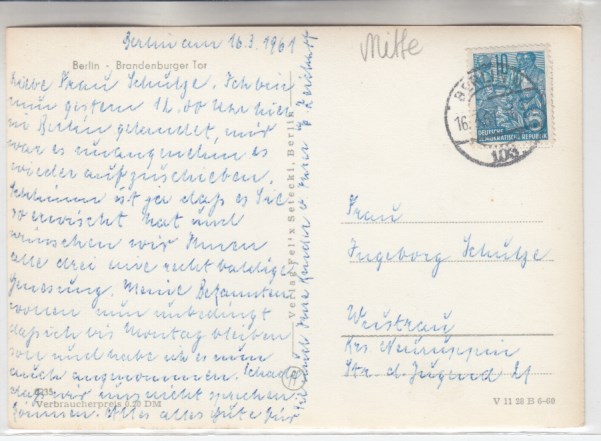 Berlin am 16.3.1961
Mitte
Berlin - Brandenburger Tor
Liebe Frau Schulze. Ich bin
nun gestern 12.00 Uhr hier
in Berlin gelandet, mir
war es unangenehm es
wieder aufzuschieben.
Schlimm ist ja daß es Sie
so erwischt hat und
wünschen wir Ihnen
alle drei eine recht baldige
Genesung. Meine Bekannten
wollen nun unbedingt
daß ich bis Montag bleiben
soll und habe ich es nun
auch angenommen. Schade
daß wir uns nicht sprechen
können. Alles alles Gute für
Ihre Kinder
Verlag Felix Setecki, Berlin
Verbraucherpreis 0,20 DM
V 11 28 B 6-60
10
BERLIN
16.
103
DEUTSCHE
DEMOKRATISCHE REPUBLIK
Frau
Ingeborg Schulze
Krs Neuruppin
Str. d. Jugend 21